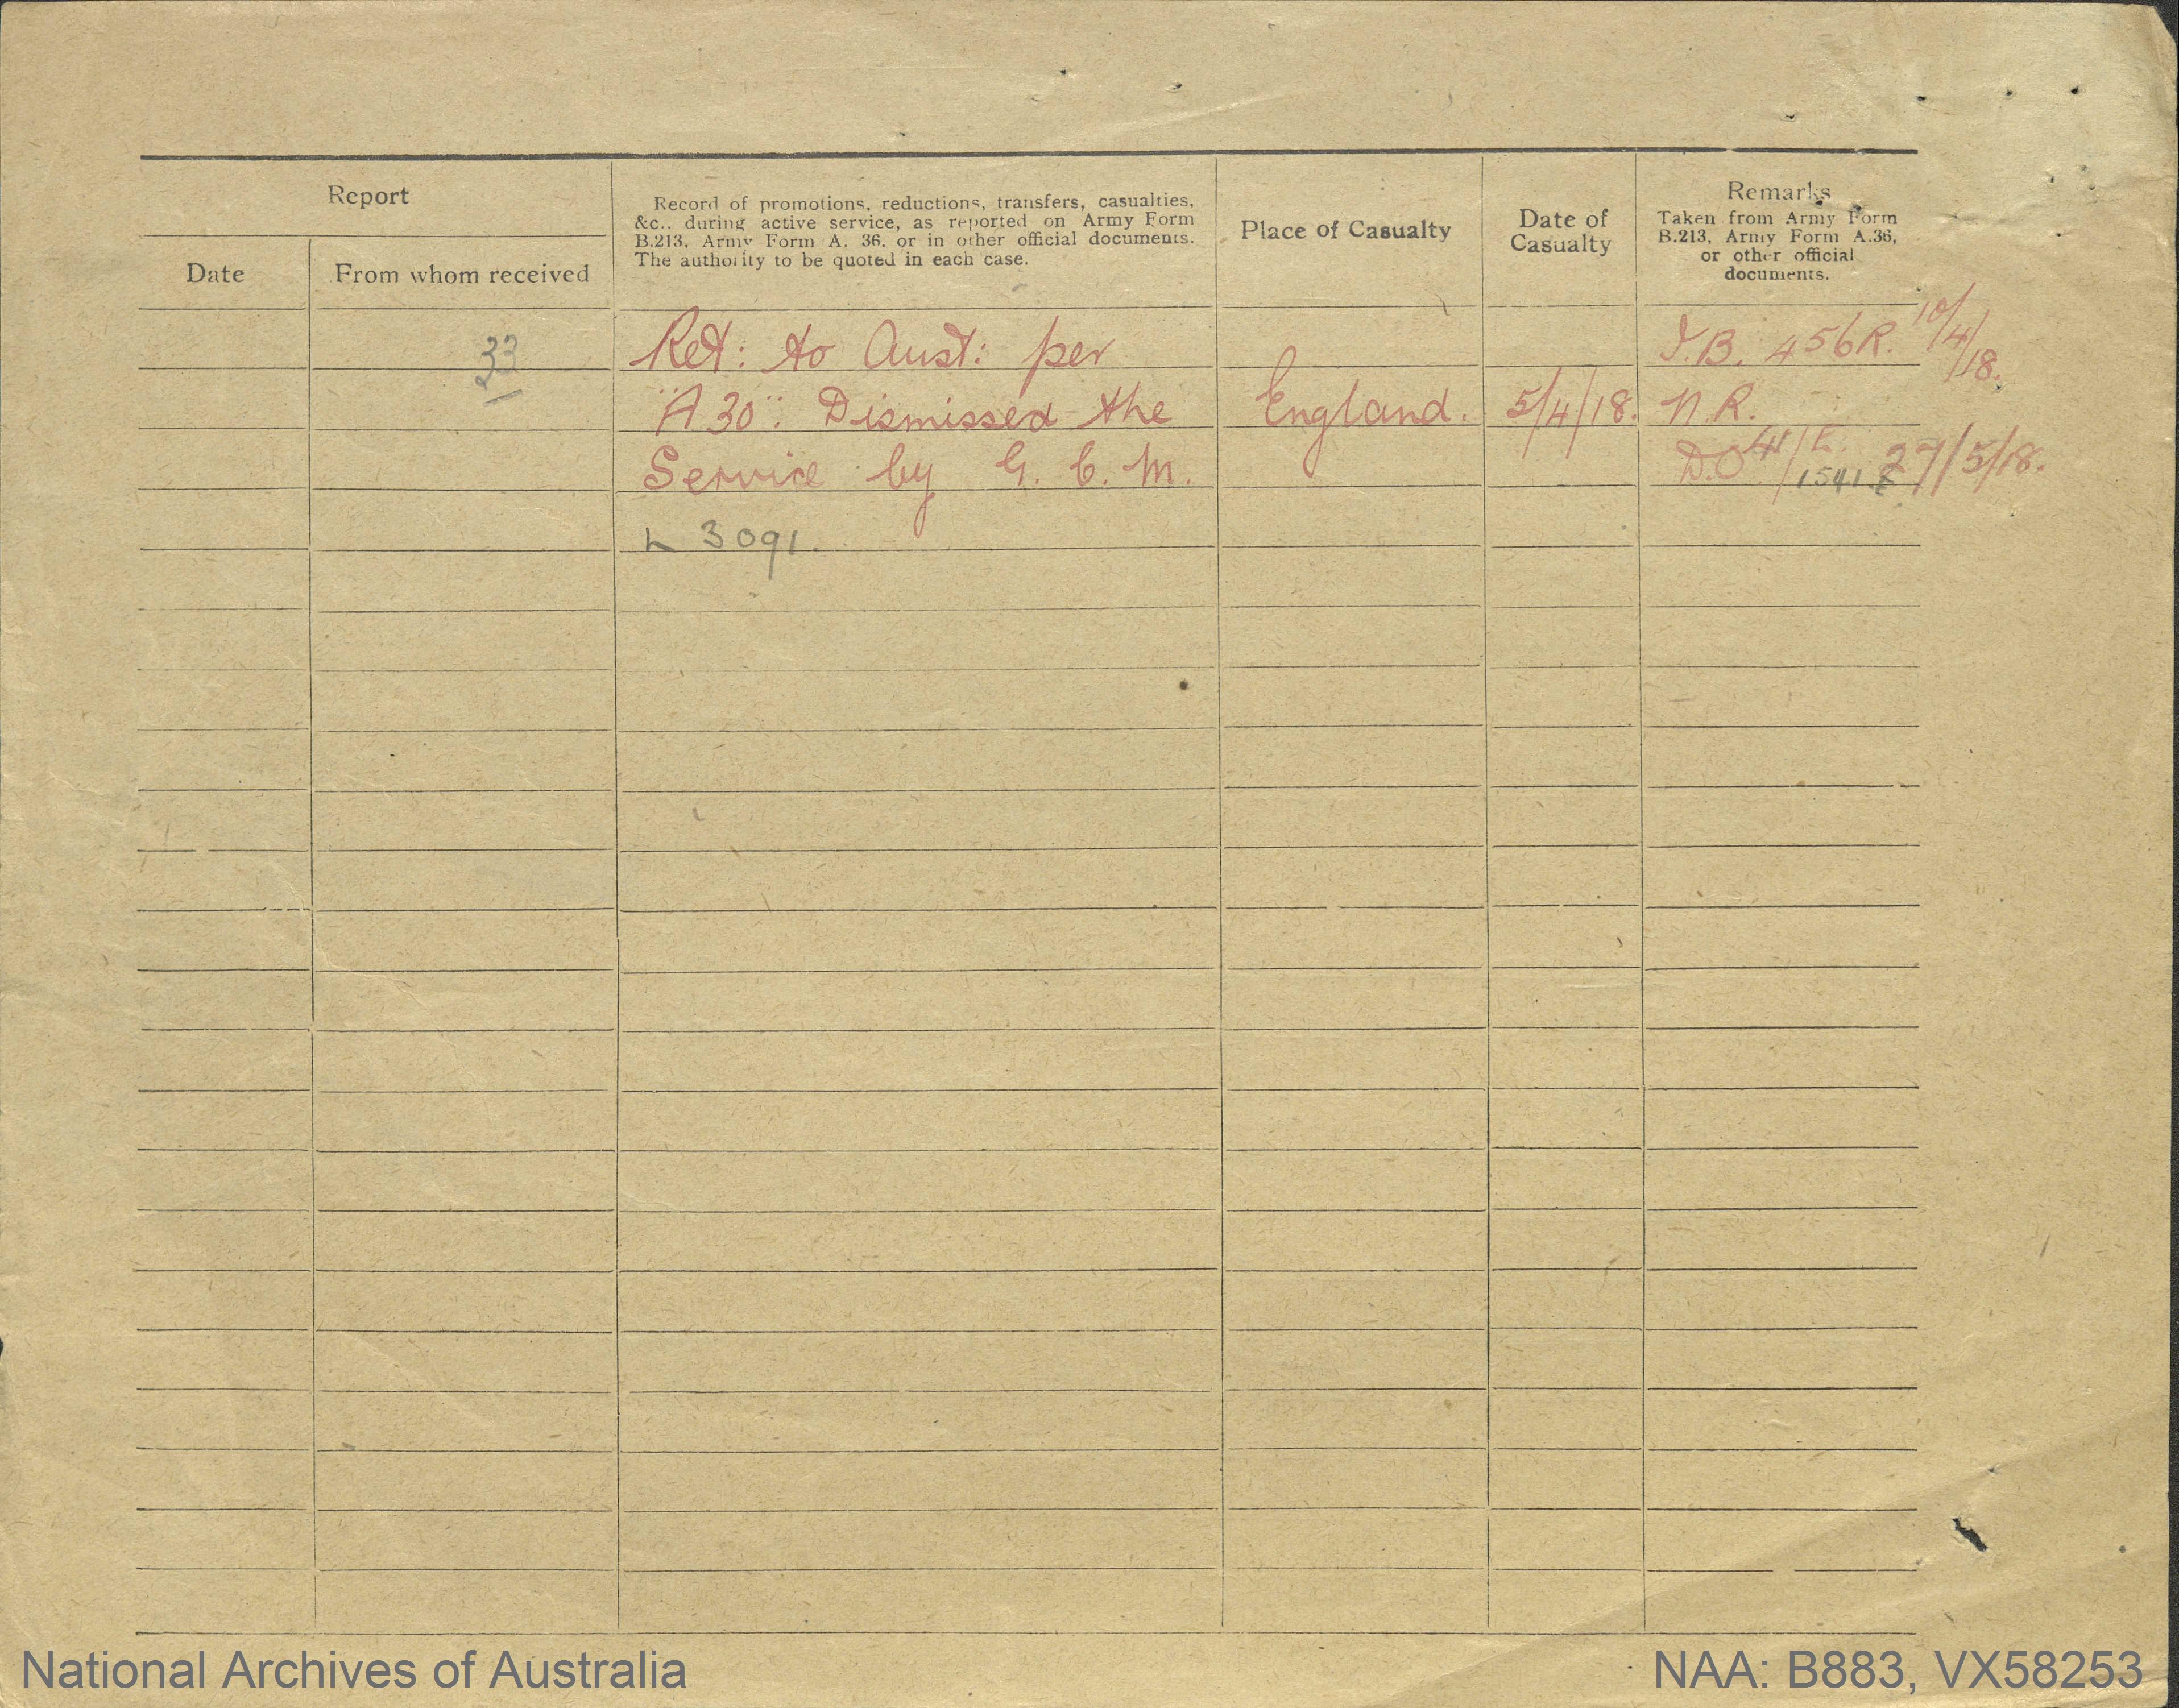 Report
Date
From whom received
Record of promotions, reductions, transfers, casualties,
&c., during active service, as reported on Army Form
B.213, Army Form A. 36, or in other official documents.
The authority to be quoted in each case.
Place of Casualty
Date of
Casualty
Remarks
Taken from Army Form
B.213, Army Form A.36,
or other official
documents.
33
Ret: to Aust: per
"A 30". Dismissed the
Service by G. C. M.
L 3091.
England.
5/4/18.
I.B. 456R. 10/4/18.
N.R.
D.O. 41/ 1541. 27/5/18.
National Archives of Australia
NAA: B883, VX58253